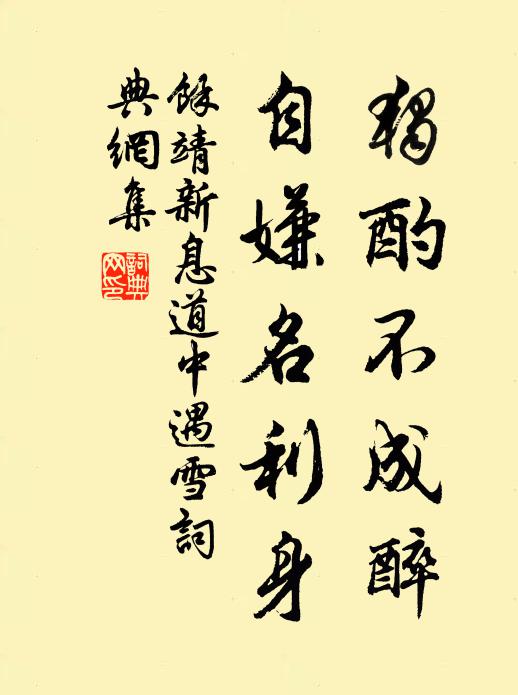 獨酌不成醉
自嫌名利身
餘靖新息道中遇雪詞
典網集
詞典
网印